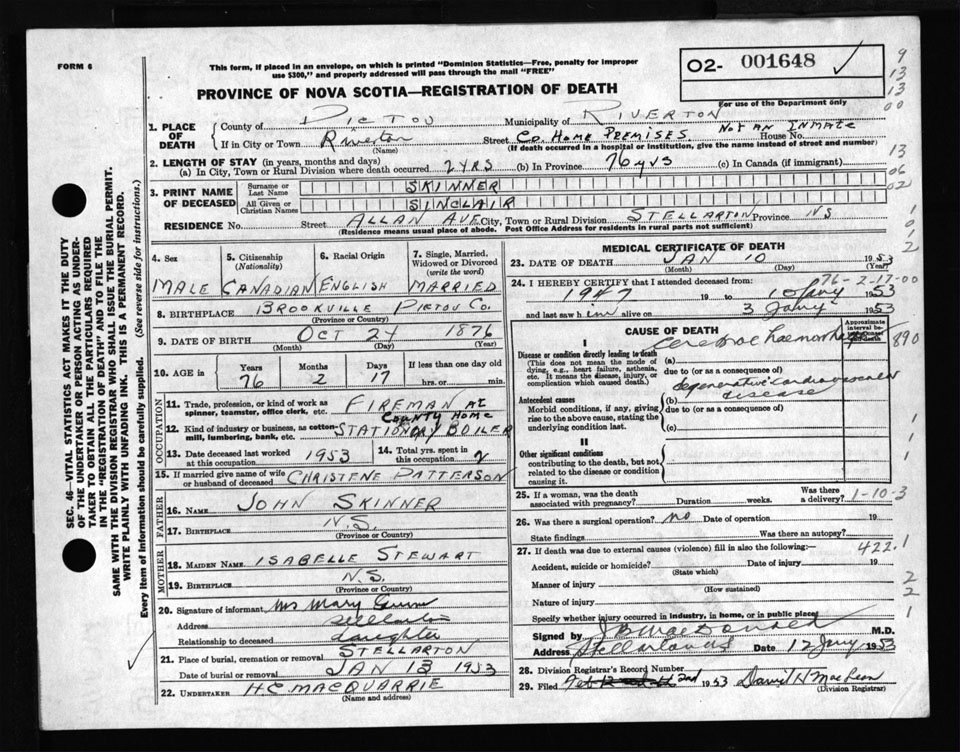 FORM 6
This form, if placed in an envelope, on which is printed "Dominion Statistics—Free, penalty for improper
use $300," and properly addressed will pass through the mail "FREE"
PROVINCE OF NOVA SCOTIA—REGISTRATION OF DEATH
O2- 001648
For use of the Department only
9
13
13
00
13
06
02
1
0
1
2
1. PLACE OF DEATH
County of PICTOU Municipality of RIVERTON
If in City or Town Riverton (Name) Street Co. HOME PREMISES. NOT AN INMATE House No.
(If death occurred in a hospital or institution, give the name instead of street and number)
2. LENGTH OF STAY (in years, months and days)
(a) In City, Town or Rural Division where death occurred 2 YRS (b) In Province 76 yrs (c) In Canada (if immigrant)
3. PRINT NAME OF DECEASED
Surname or Last Name SKINNER
All Given or Christian Names SINCLAIR
RESIDENCE No. Street ALLAN AVE City, Town or Rural Division STELLARTON Province NS
(Residence means usual place of abode. Post Office Address for residents in rural parts not sufficient)
4. Sex
MALE
5. Citizenship (Nationality)
CANADIAN
6. Racial Origin
ENGLISH
7. Single, Married, Widowed or Divorced (write the word)
MARRIED
8. BIRTHPLACE BROOKVILLE PICTOU Co.
(Province or Country)
9. DATE OF BIRTH OCT 24 1876
(Month) (Day) (Year)
10. AGE in Years 76 Months 2 Days 17 If less than one day old hrs. or min.
OCCUPATION
11. Trade, profession, or kind of work as spinner, teamster, office clerk, etc. FIREMAN AT COUNTY HOME
12. Kind of industry or business, as cotton-mill, lumbering, bank, etc. STATIONARY BOILER
13. Date deceased last worked at this occupation 1953
14. Total yrs. spent in this occupation 2
15. If married give name of wife or husband of deceased CHRISTENE PATTERSON
FATHER
16. NAME JOHN SKINNER
17. BIRTHPLACE N.S.
(Province or Country)
MOTHER
18. MAIDEN NAME ISABELLE STEWART
19. BIRTHPLACE N.S.
(Province or Country)
20. Signature of informant Mrs Mary Gunn
Address Stellarton
Relationship to deceased daughter
21. Place of burial, cremation or removal STELLARTON
Date of burial or removal JAN 13 1953
22. UNDERTAKER H.C. MACQUARRIE
(Name and address)
MEDICAL CERTIFICATE OF DEATH
23. DATE OF DEATH JAN 10 1953
(Month) (Day) (Year)
76-2-17-00
24. I HEREBY CERTIFY that I attended deceased from:
1947 19 to 10 Jany 1953
and last saw him alive on 3 Jany 1953
CAUSE OF DEATH
Approximate interval between onset and death
I
Disease or condition directly leading to death
(This does not mean the mode of dying, e.g., heart failure, asthenia, etc. It means the disease, injury, or complication which caused death.)
(a) cerebral haemorrhage
890
due to (or as a consequence of)
Antecedent causes
Morbid conditions, if any, giving rise to the above cause, stating the underlying condition last.
(b) degenerative cardiovascular disease
due to (or as a consequence of)
(c)
II
Other significant conditions
contributing to the death, but not related to the disease or condition causing it.
1
1
1
25. If a woman, was the death associated with pregnancy? Duration weeks. Was there a delivery?
1-10-3
26. Was there a surgical operation? no Date of operation 19
State findings Was there an autopsy?
27. If death was due to external causes (violence) fill in also the following:—
422.1
Accident, suicide or homicide? Date of injury 19
(State which)
Manner of injury
(How sustained)
Nature of injury
Specify whether injury occurred in industry, in home, or in public place
2
2
1
Signed by MacDonald M.D.
Address Stellarton NS Date 12 Jany 1953
28. Division Registrar's Record Number
29. Filed Feb 2nd 1953 David H MacLean
(Division Registrar)
SEC. 46—VITAL STATISTICS ACT MAKES IT THE DUTY
OF THE UNDERTAKER OR PERSON ACTING AS UNDER-
TAKER TO OBTAIN ALL THE PARTICULARS REQUIRED
IN THE "REGISTRATION OF DEATH" AND TO FILE THE
SAME WITH THE DIVISION REGISTRAR WHO SHALL ISSUE THE BURIAL PERMIT.
WRITE PLAINLY WITH UNFADING INK. THIS IS A PERMANENT RECORD.
Every item of information should be carefully supplied. (See reverse side for instructions.)